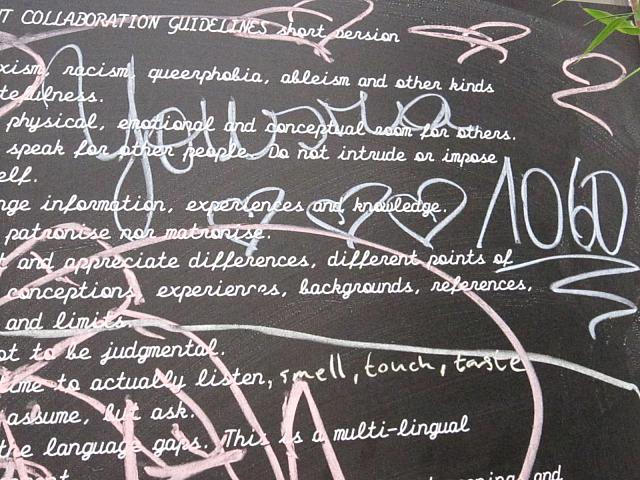 T COLLABORATION GUIDELINES short version
xism, racism, queerphobia, ableism and other kinds
tefulness.
physical, emotional and conceptual room for others.
speak for other people. Do not intrude or impose
elf.
nge information, experiences and knowledge.
patronise nor matronise.
t and appreciate differences, different points of
conceptions, experiences, backgrounds, references,
and limits.
ot to be judgmental.
time to actually listen, smell, touch, taste
assume, but ask.
the language gaps. This is a multi-lingual
and
1060